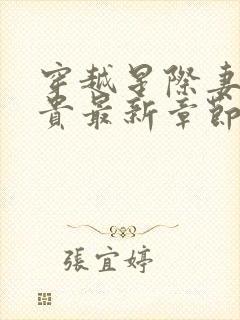 穿越星際妻
貴最新章節
張宜婷